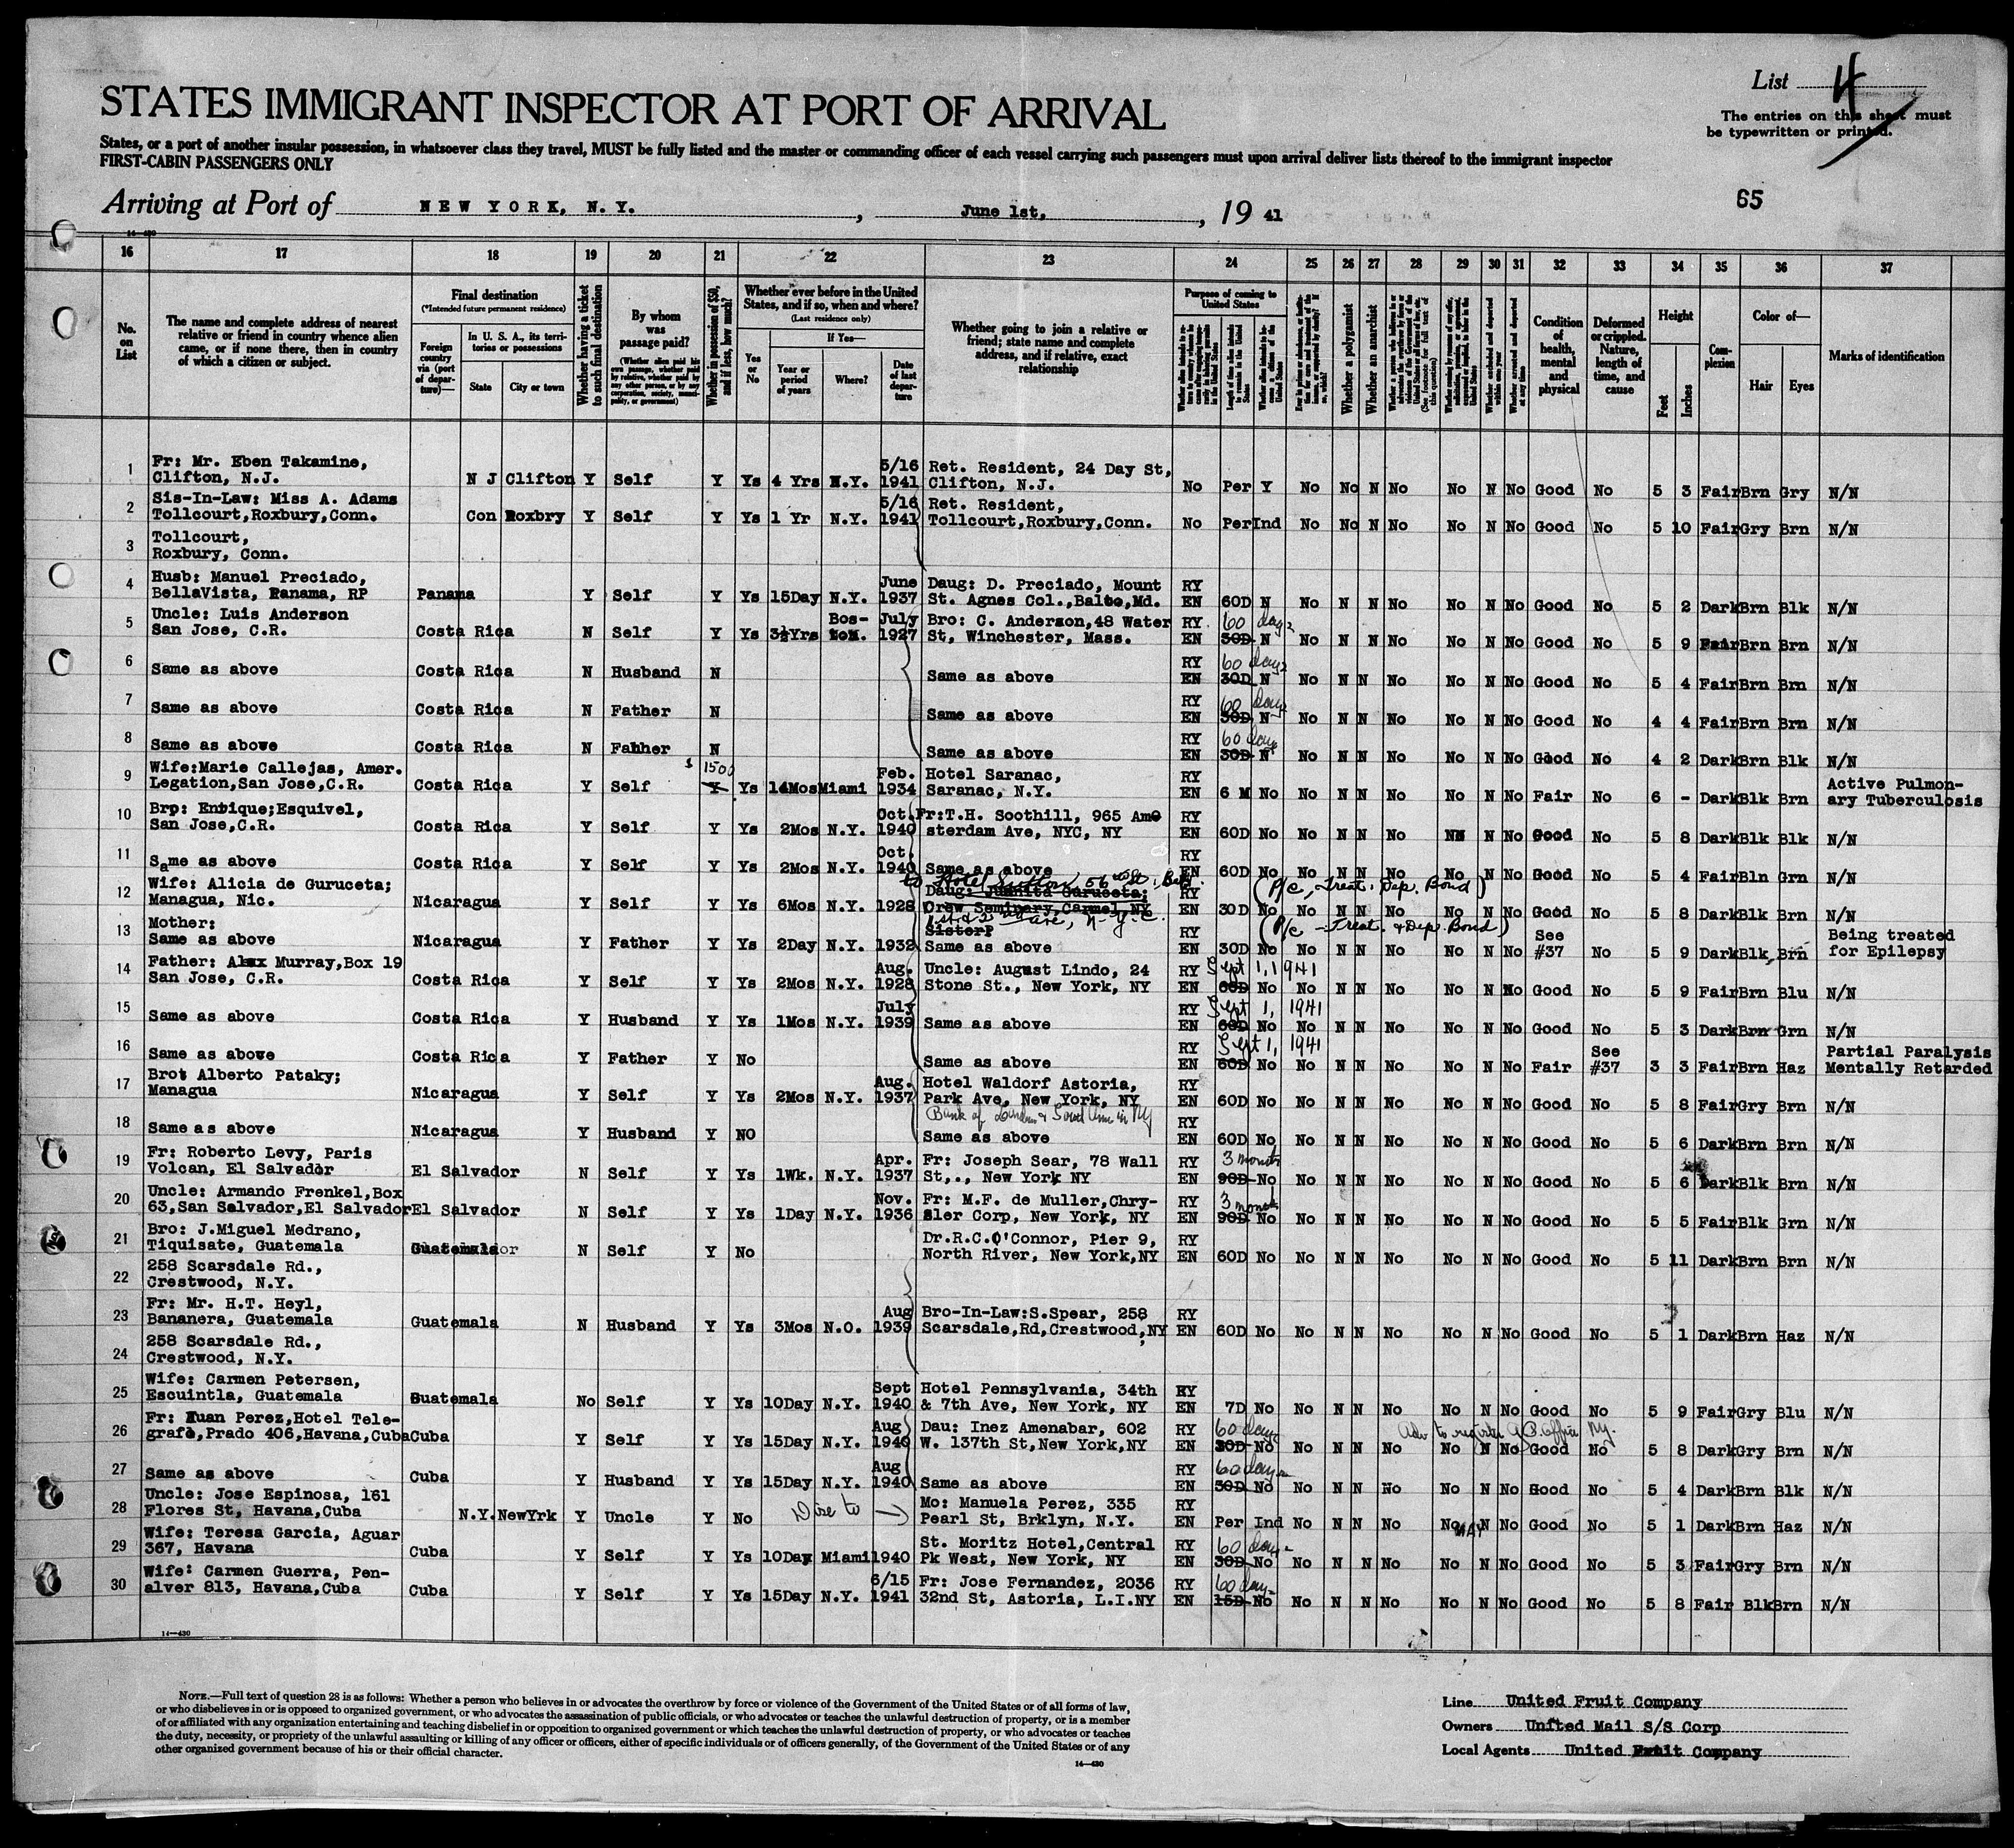 List 4
STATES IMMIGRANT INSPECTOR AT PORT OF ARRIVAL
The entries on this sheet must
be typewritten or printed.
States, or a port of another insular possession, in whatsoever class they travel, MUST be fully listed and the master or commanding officer of each vessel carrying such passengers must upon arrival deliver lists thereof to the immigrant inspector
FIRST-CABIN PASSENGERS ONLY
65
Arriving at Port of NEW YORK, N. Y., June 1st, 19 41
14—430
16 17 18 19 20 21 22 23 24 25 26 27 28 29 30 31 32 33 34 35 36 37
No. on List
The name and complete address of nearest relative or friend in country whence alien came, or if none there, then in country of which a citizen or subject.
Final destination
(*Intended future permanent residence)
Foreign country via (port of departure)—
In U. S. A., its territories or possessions
State City or town
Whether having a ticket to such final destination
By whom was passage paid?
(Whether alien paid his own passage, whether paid by relative, whether paid by any other person, or by any corporation, society, municipality, or government)
Whether in possession of $50, and if less, how much?
Whether ever before in the United States, and if so, when and where?
(Last residence only)
Yes or No
If Yes—
Year or period of years Where? Date of last departure
Whether going to join a relative or friend; state name and complete address, and if relative, exact relationship
Purpose of coming to United States
Length of time alien intends to remain in the United States
Whether a polygamist
Whether an anarchist
Condition of health, mental and physical
Deformed or crippled. Nature, length of time, and cause
Height
Feet Inches
Complexion
Color of—
Hair Eyes
Marks of identification
1 Fr: Mr. Eben Takamine, 5/16 Ret. Resident, 24 Day St,
Clifton, N.J. N J Clifton Y Self Y Ys 4 Yrs N.Y. 1941 Clifton, N.J. No Per Y No No N No No N No Good No 5 3 Fair Brn Gry N/N
2 Sis-In-Law: Miss A. Adams 5/16 Ret. Resident,
Tollcourt,Roxbury,Conn. Con Roxbry Y Self Y Ys 1 Yr N.Y. 1941 Tollcourt,Roxbury,Conn. No Per Ind No No N No No N No Good No 5 10 Fair Gry Brn N/N
3 Tollcourt,
Roxbury, Conn.
4 Husb: Manuel Preciado, June Daug: D. Preciado, Mount RY
BellaVista, Panama, RP Panama Y Self Y Ys 15Day N.Y. 1937 St. Agnes Col.,Balto,Md. EN 60D N No N N No No N No Good No 5 2 Dark Brn Blk N/N
5 Uncle: Luis Anderson Bos- July Bro: C. Anderson,48 Water RY 60 days
San Jose, C.R. Costa Rica N Self Y Ys 3½Yrs ton. 1927 St, Winchester, Mass. EN 30D N No N N No No N No Good No 5 9 Fair Brn Brn N/N
6 Same as above Costa Rica N Husband N Same as above RY 60 days
EN 30D N No N N No No N No Good No 5 4 Fair Brn Brn N/N
7 Same as above Costa Rica N Father N Same as above RY 60 days
EN 30D N No N N No No N No Good No 4 4 Fair Brn Brn N/N
8 Same as above Costa Rica N Father N Same as above RY 60 days
EN 30D N No N N No No N No Good No 4 2 Dark Brn Blk N/N
9 Wife:Marie Callejas, Amer. $ 1500 Feb. Hotel Saranac, RY Active Pulmon-
Legation,San Jose,C.R. Costa Rica Y Self Y Ys 14Mos Miami 1934 Saranac, N.Y. EN 6 M No No N N No No N No Fair No 6 - Dark Blk Brn ary Tuberculosis
10 Brp: Enbique;Esquivel, Oct. Fr:T.H. Soothill, 965 Ame RY
San Jose,C.R. Costa Rica Y Self Y Ys 2Mos N.Y. 1940 sterdam Ave, NYC, NY EN 60D No No N N No No N No Good No 5 8 Dark Blk Blk N/N
11 Same as above Costa Rica Y Self Y Ys 2Mos N.Y. Oct. 1940 Same as above RY
EN 60D No No N N No No N No Good No 5 4 Fair Bln Grn N/N
to Hotel Sutton 56th St. Bet.
12 Wife: Alicia de Guruceta; Daug: Juanita Guruceta; RY (P/c, Treat. Dep. Bond)
Managua, Nic. Nicaragua Y Self Y Ys 6Mos N.Y. 1928 Drew Seminary,Carmel NY EN 30D No No N N No No N No Good No 5 8 Dark Blk Brn N/N
1st & 2nd Ave, N.Y.C.
13 Mother: Sister: RY (P/c - Treat. & Dep. Bond) See Being treated
Same as above Nicaragua Y Father Y Ys 2Day N.Y. 1932 Same as above EN 30D No No N N No No N No #37 No 5 9 Dark Blk Brn for Epilepsy
14 Father: Alex Murray,Box 19 Aug. Uncle: August Lindo, 24 RY Sept 1, 1941
San Jose, C.R. Costa Rica Y Self Y Ys 2Mos N.Y. 1928 Stone St., New York, NY EN 60D No No N N No No N No Good No 5 9 Fair Brn Blu N/N
15 Same as above Costa Rica Y Husband Y Ys 1Mos N.Y. July 1939 Same as above RY Sept 1, 1941
EN 60D No No N N No No N No Good No 5 3 Dark Brn Grn N/N
16 Same as above Costa Rica Y Father Y No Same as above RY Sept 1, 1941 See Partial Paralysis
EN 60D No No N N No No N No Fair #37 3 3 Fair Brn Haz Mentally Retarded
17 Bro: Alberto Pataky; Aug. Hotel Waldorf Astoria, RY
Managua Nicaragua Y Self Y Ys 2Mos N.Y. 1937 Park Ave, New York, NY EN 60D No No N N No No N No Good No 5 8 Fair Gry Brn N/N
Bank of London & South Am in NY
18 Same as above Nicaragua Y Husband Y NO Same as above RY
EN 60D No No N N No No N No Good No 5 6 Dark Brn Brn N/N
19 Fr: Roberto Levy, Paris Apr. Fr: Joseph Sear, 78 Wall RY 3 months
Volcan, El Salvador El Salvador N Self Y Ys 1Wk. N.Y. 1937 St,., New York NY EN 90D No No N N No No N No Good No 5 6 Dark Blk Brn N/N
20 Uncle: Armando Frenkel,Box Nov. Fr: M.F. de Muller,Chry- RY 3 months
63,San Salvador,El Salvador El Salvador N Self Y Ys 1Day N.Y. 1936 sler Corp, New York, NY EN 90D No No N N No No N No Good No 5 5 Fair Blk Grn N/N
21 Bro: J.Miguel Medrano, Dr.R.C.O'Connor, Pier 9, RY
Tiquisate, Guatemala Guatemala N Self Y No North River, New York,NY EN 60D No No N N No No N No Good No 5 11 Dark Brn Brn N/N
22 258 Scarsdale Rd.,
Crestwood, N.Y.
23 Fr: Mr. H.T. Heyl, Aug Bro-In-Law:S.Spear, 258 RY
Bananera, Guatemala Guatemala N Husband Y Ys 3Mos N.O. 1939 Scarsdale,Rd,Crestwood,NY EN 60D No No N N No No N No Good No 5 1 Dark Brn Haz N/N
24 258 Scarsdale Rd.,
Crestwood, N.Y.
25 Wife: Carmen Petersen, Sept Hotel Pennsylvania, 34th RY
Escuintla, Guatemala Guatemala No Self Y Ys 10Day N.Y. 1940 & 7th Ave, New York, NY EN 7D No No N N No No N No Good No 5 9 Fair Gry Blu N/N
26 Fr: Juan Perez,Hotel Tele- Aug Dau: Inez Amenabar, 602 RY 60 days Adv. to register Office NY.
grafo,Prado 406,Havana,Cuba Cuba Y Self Y Ys 15Day N.Y. 1940 W. 137th St,New York,NY EN 30D No No N N No No N No Good No 5 8 Dark Gry Brn N/N
27 Same as above Cuba Y Husband Y Ys 15Day N.Y. Aug 1940 Same as above RY 60 days
EN 30D No No N N No No N No Good No 5 4 Dark Brn Blk N/N
28 Uncle: Jose Espinosa, 161 Mo: Manuela Perez, 335 RY
Flores St, Havana,Cuba N.Y. NewYrk Y Uncle Y No Pearl St, Brklyn, N.Y. EN Per Ind No N N No No N No Good No 5 1 Dark Brn Haz N/N
29 Wife: Teresa Garcia, Aguar MAY St. Moritz Hotel,Central RY 60 days
367, Havana Cuba Y Self Y Ys 10Day Miami 1940 Pk West, New York, NY EN 30D No No N N No No N No Good No 5 3 Fair Gry Brn N/N
30 Wife: Carmen Guerra, Pen- 6/15 Fr: Jose Fernandez, 2036 RY 60 days
alver 813, Havana,Cuba Cuba Y Self Y Ys 15Day N.Y. 1941 32nd St, Astoria, L.I.NY EN 15D No No N N No No N No Good No 5 8 Fair Blk Brn N/N
14—430
NOTE.—Full text of question 28 is as follows: Whether a person who believes in or advocates the overthrow by force or violence of the Government of the United States or of all forms of law,
or who disbelieves in or is opposed to organized government, or who advocates the assassination of public officials, or who advocates or teaches the unlawful destruction of property, or is a member
of or affiliated with any organization entertaining and teaching disbelief in or opposition to organized government or which teaches the unlawful destruction of property, or who advocates or teaches
the duty, necessity, or propriety of the unlawful assaulting or killing of any officer or officers, either of specific individuals or of officers generally, of the Government of the United States or of any
other organized government because of his or their official character.
14—430
Line United Fruit Company
Owners United Mail S/S Corp
Local Agents United Fruit Company